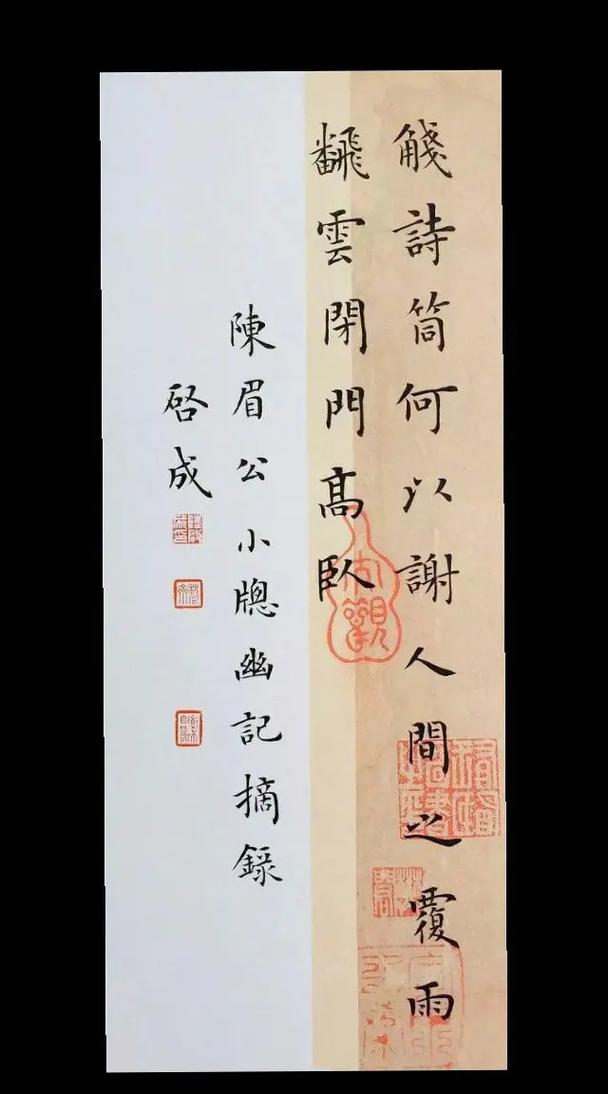 𧣴詩筒何以謝人間之覆雨
飜雲閉門髙臥
陳眉公小牕幽記摘錄
啓成